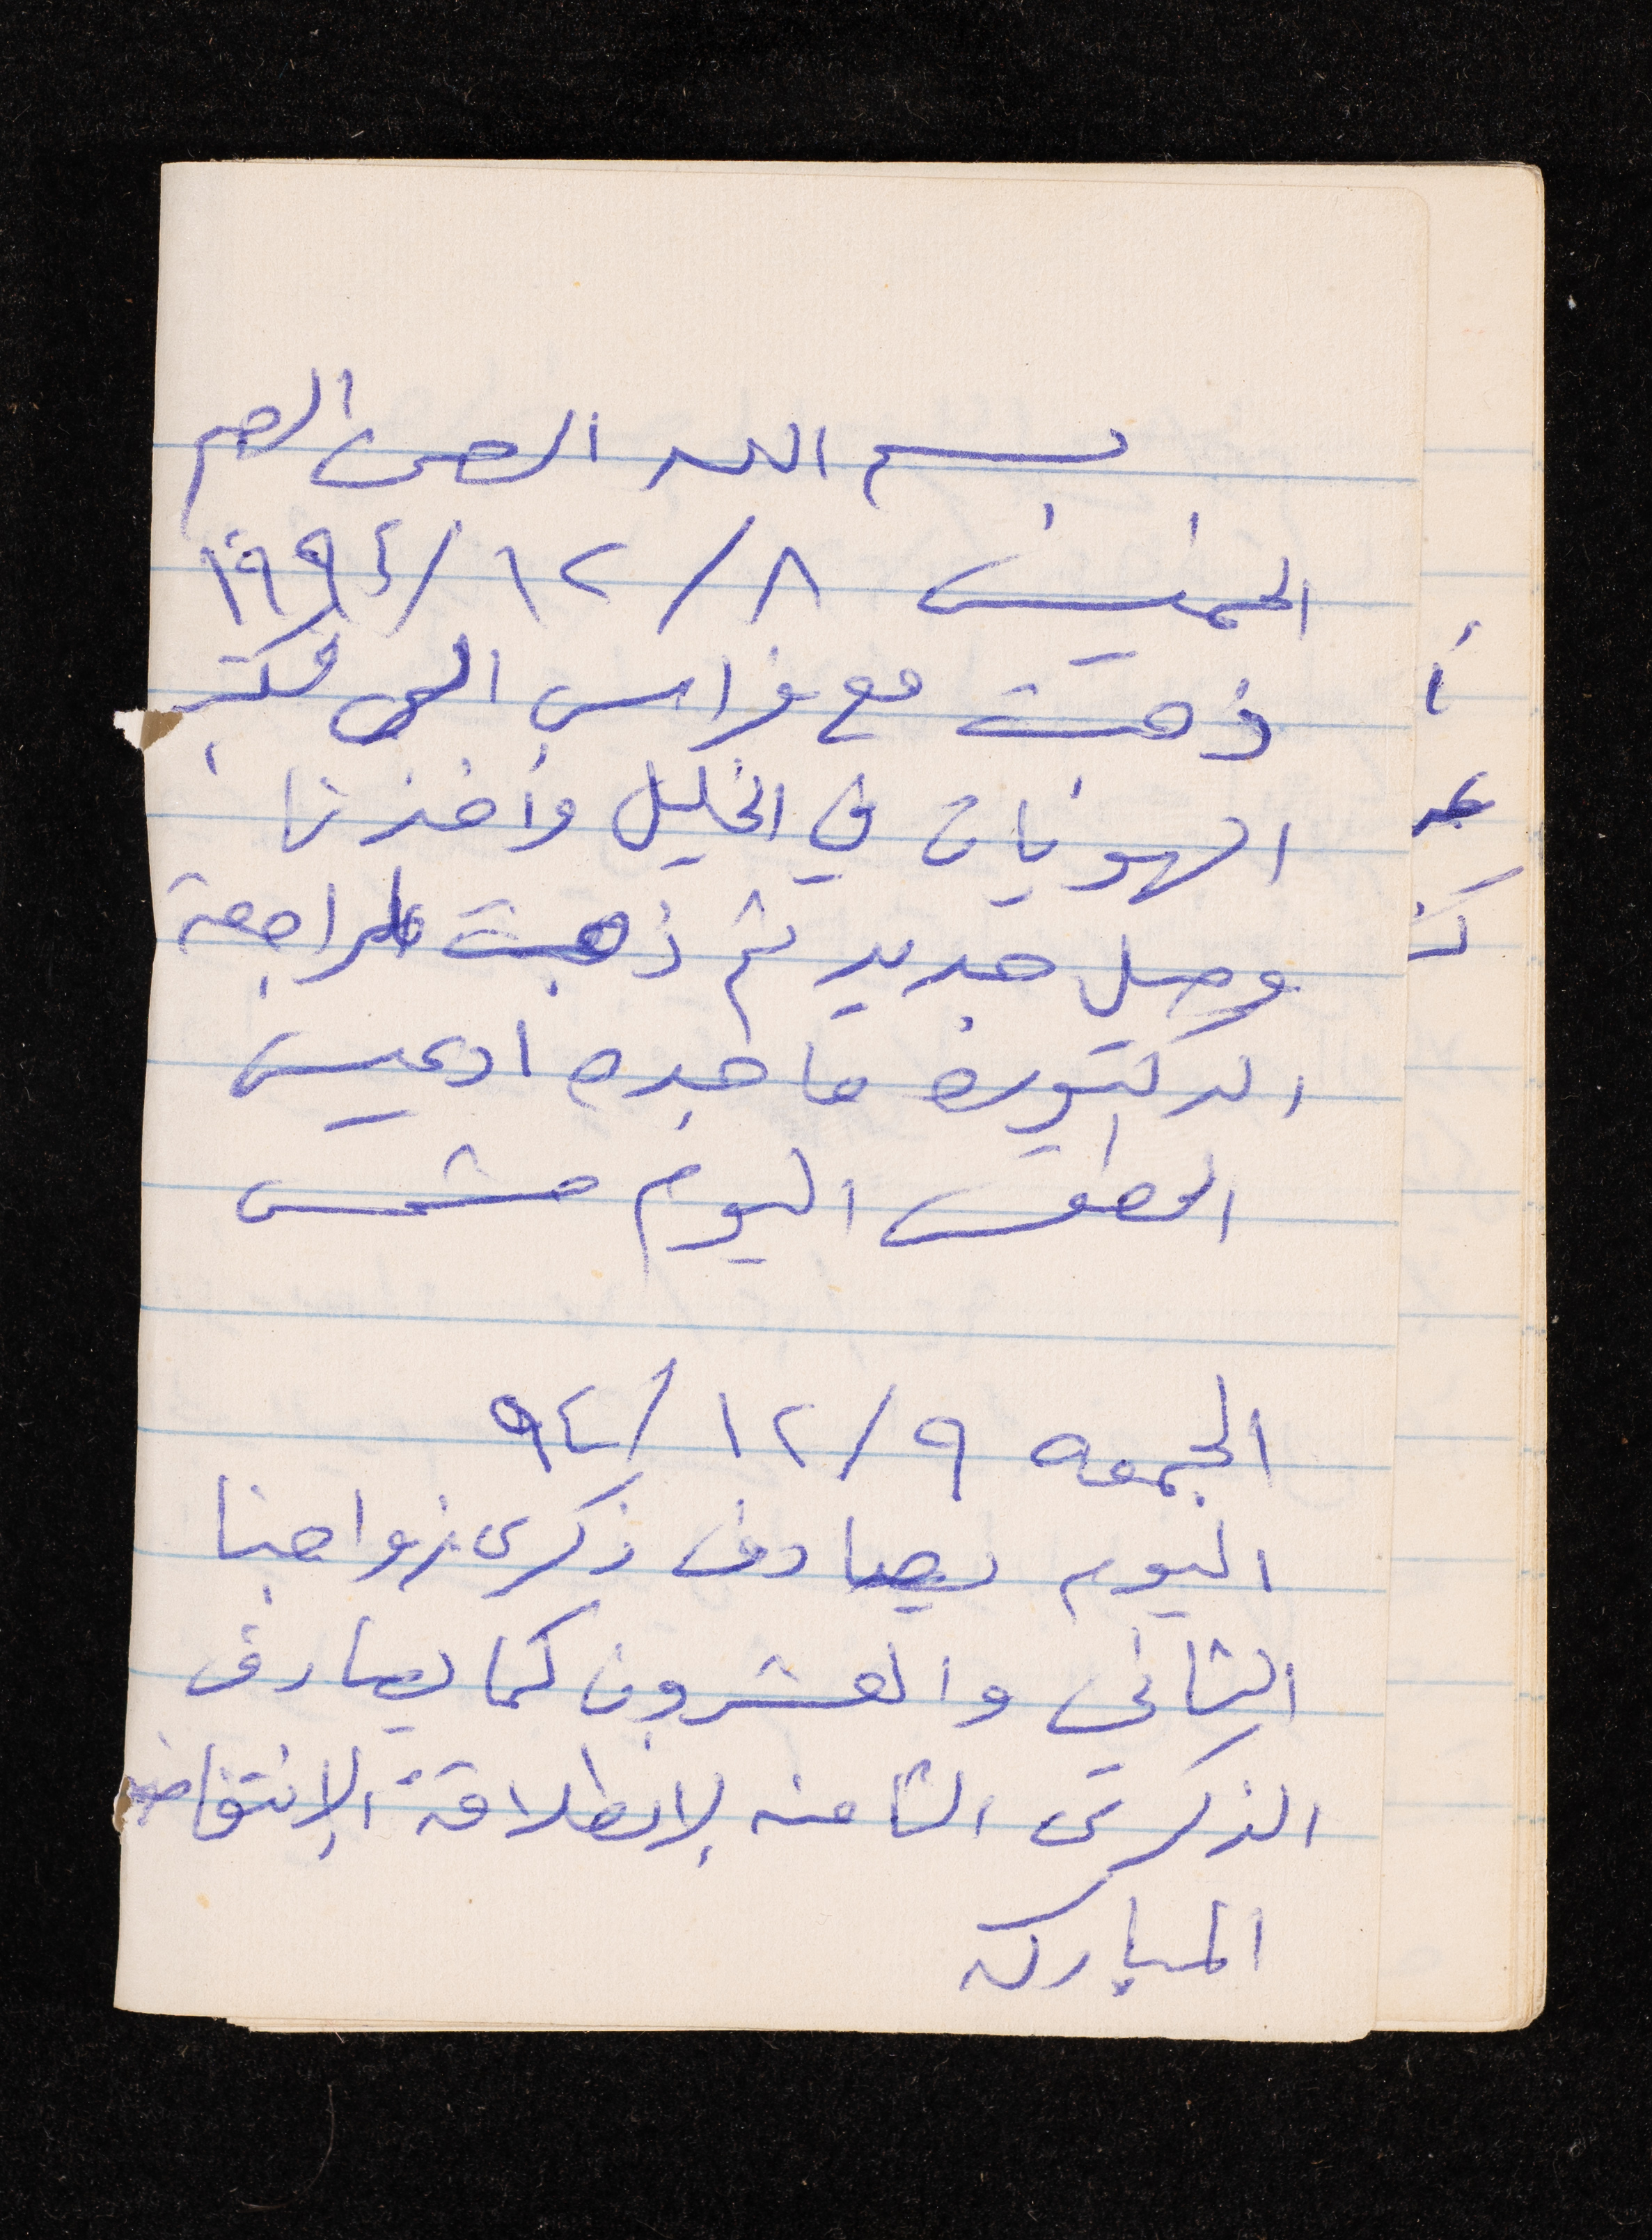 بسم الله الرحمن الرحيم
الخميس ٨/١٢/١٩٩٤
ذهبت مع فراس الى مكتب
الهويات في الخليل وأخذنا
وصل جديد ثم ذهبت لمراجعة
الدكتوره ماجده ادعيس
الطقس اليوم مشمس
الجمعه ٩/١٢/٩٤
اليوم يصادف ذكرى زواجنا
الثاني والعشرون كما يصادف
الذكرى الثامنه لإنطلاقة الإنتفاضه
المباركه